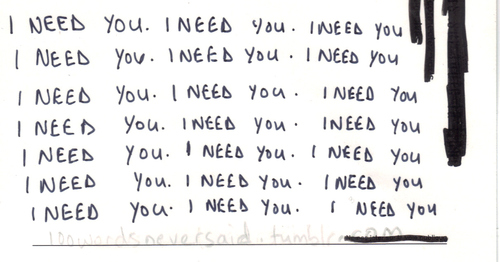 I NEED YOU. I NEED YOU. I NEED YOU
I NEED YOU. I NEED YOU. I NEED YOU
I NEED YOU. I NEED YOU. I NEED YOU
I NEED YOU. I NEED YOU. I NEED YOU
I NEED YOU. I NEED YOU. I NEED YOU
I NEED YOU. I NEED YOU. I NEED YOU
I NEED YOU. I NEED YOU. I NEED YOU
100wordsneversaid.tumblr.com